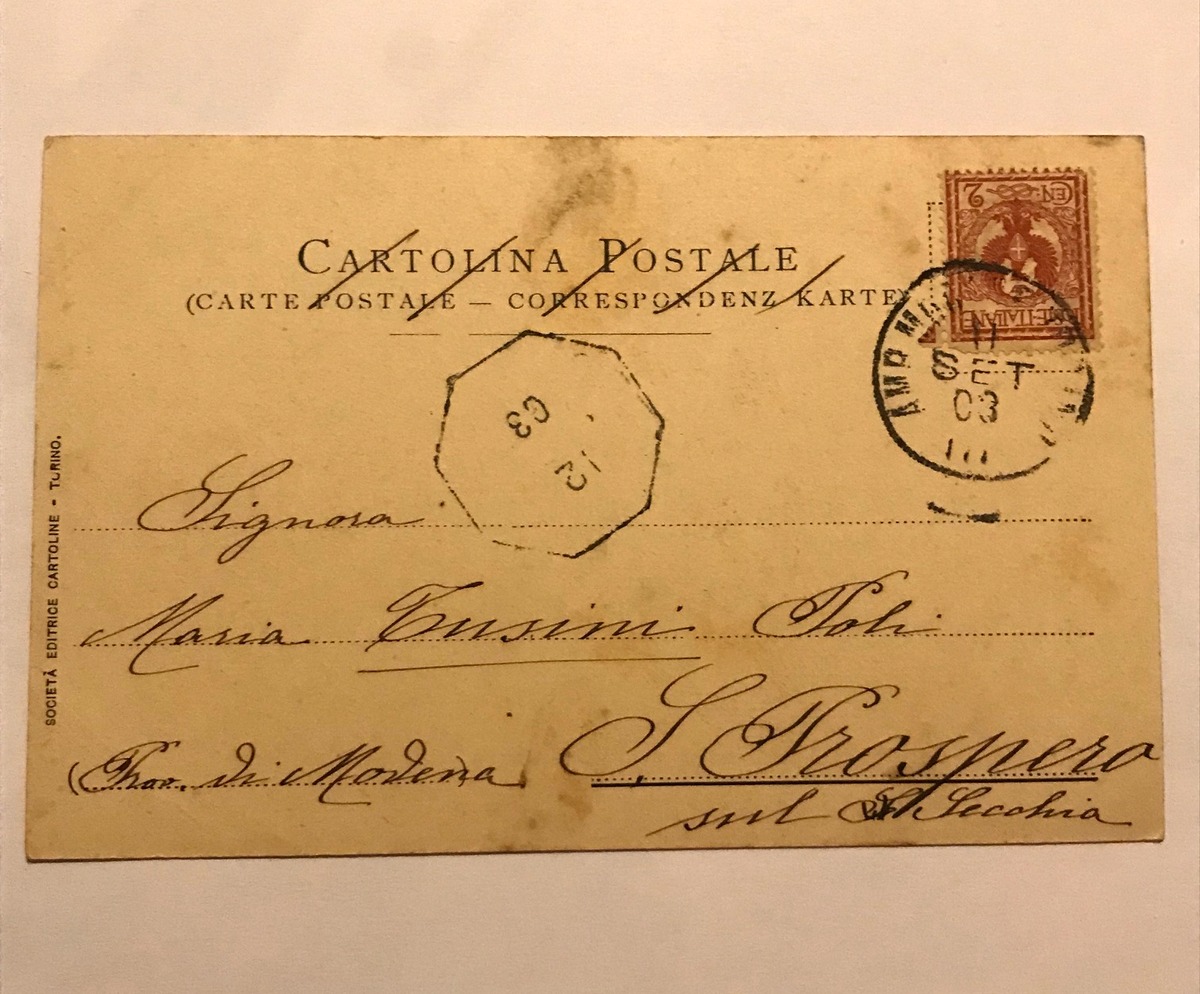 CARTOLINA POSTALE
(CARTE POSTALE — CORRESPONDENZ KARTE)
CEN. 2
POSTE ITALIANE
AMB
11
SET
03
III
12
03
Signora
Maria Tusini Poli
S. Prospero
sul Secchia
(Prov. di Modena)
SOCIETÀ EDITRICE CARTOLINE - TORINO.